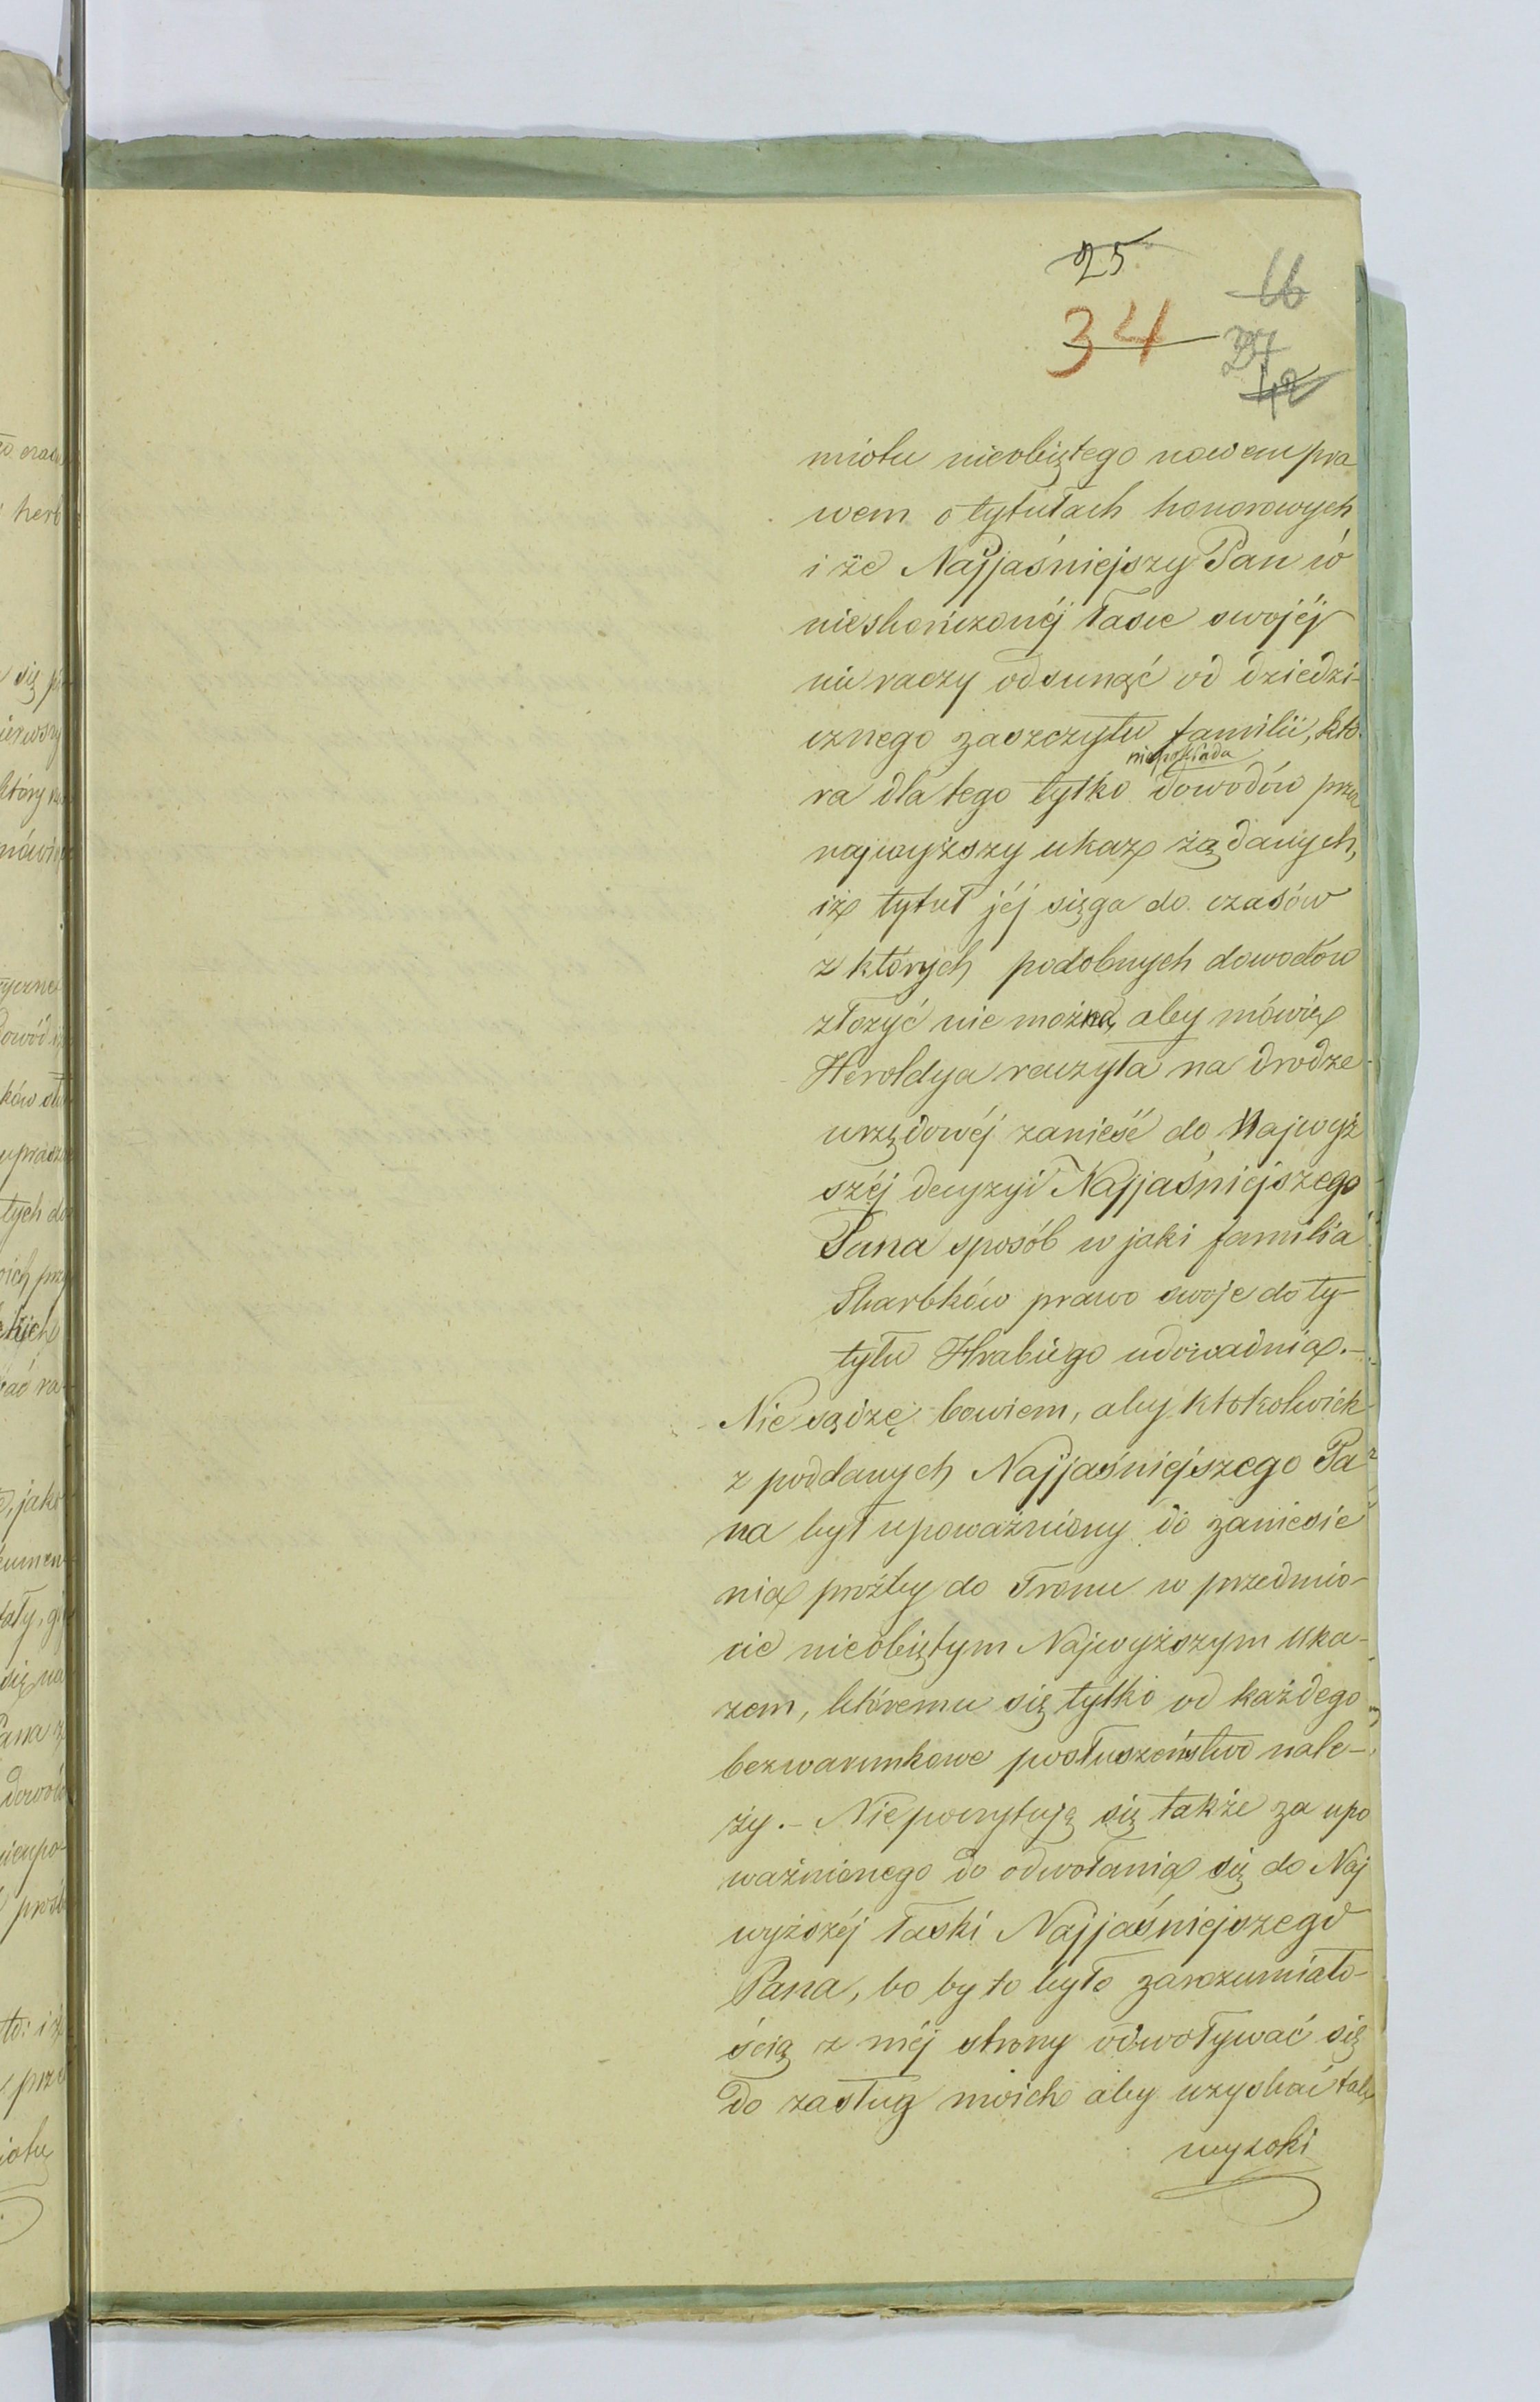 25
34
16
37
42
miotu nieobiętego nowem pra
wem o tytułach honorowych
i że Najjaśniejszy Pan w
nieskończonéj łasce swojéj
nie raczy odsunąć od dziedzi-
cznego zaszczytu familii, któ-
nieposiada
ra dla tego tylko dowodów przez
najwyższy ukaz żądanych,
iż tytuł jéj sięga do czasów
z których podobnych dowodów
złożyć nie można, aby mówię
Heroldya raczyła na drodze
urzędowéj zanieść do Najwyż
széj decyzyi Najjaśniejszego
Pana sposób w jaki familia
Skarbków prawo swoje do ty-
tytu Hrabiego udowadnia.-
Nie sądzę bowiem, aby ktokolwiek
z poddanych Najjaśniejszego Pa
na był upoważniony do zaniesie
nia prożby do Tronu w przedmio-
cie nieobiętym Najwyższym Uka-
zem, któremu się tylko od każdego
bezwarunkowe posłuszeństwo nale-
ży.- Nie poczytuję się także za upo
ważnionego do odwołania się do Naj
wyższéj łaski Najjaśniejszego
Pana, bo by to było zarozumiało-
ścią z méj strony odwoływać się
do zasług moich aby uzyskać tak
wysoki